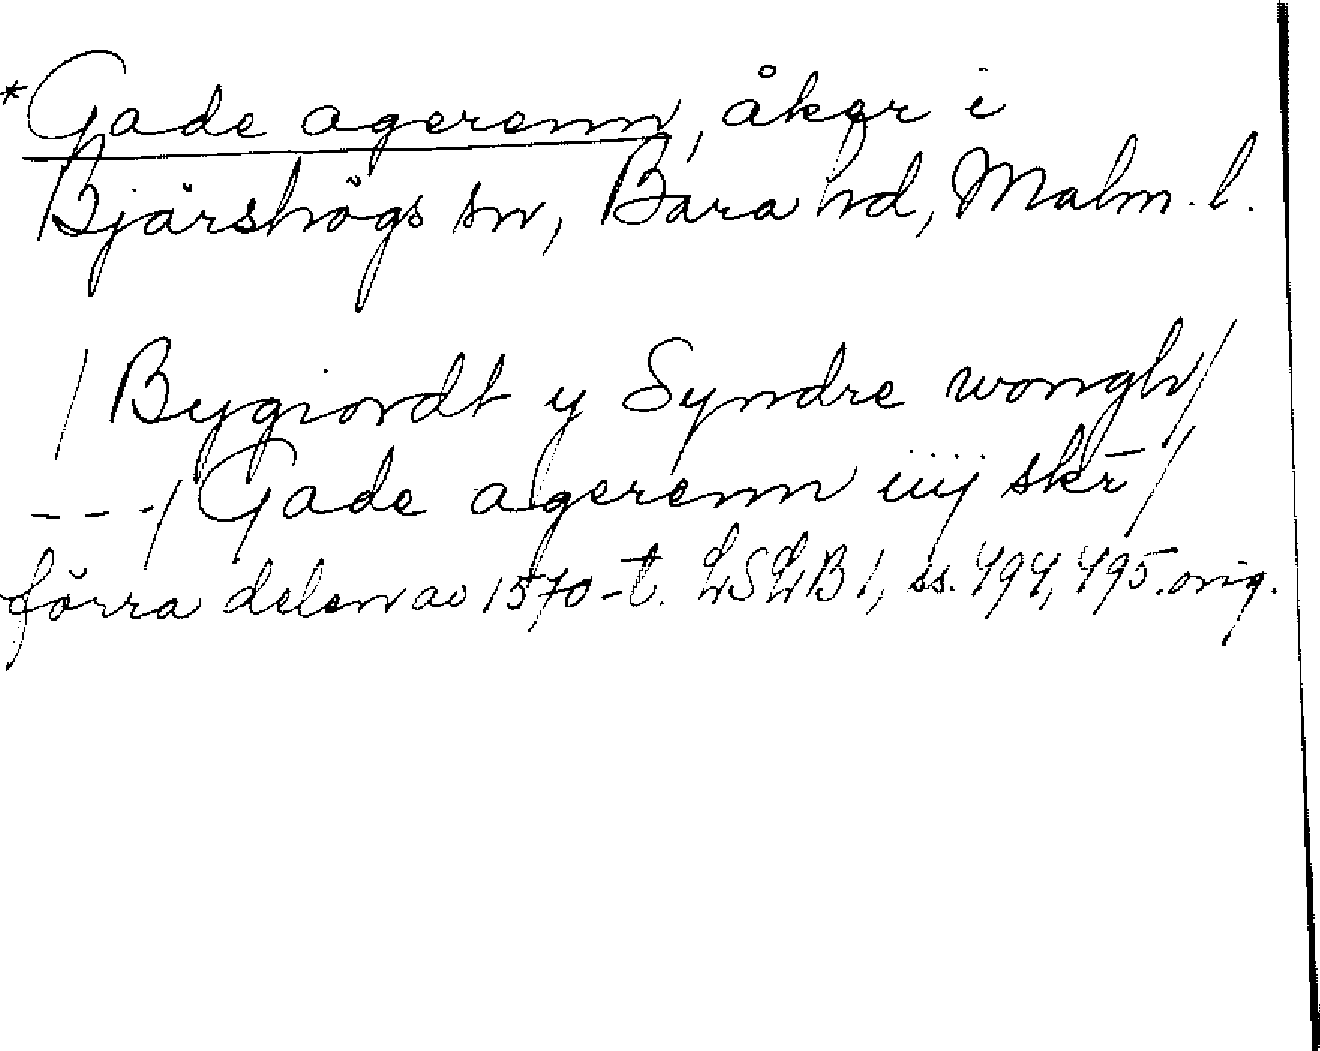 *Gade agerenn, åker i
Bjärshögs sn, Bara hd, Malm. l.
/ Bygiordt y Syndre wongh /
- - - / Gade agerenn iiij skr̄ /
förra delen av 1570-t. LSLB 1, ss. 494, 495. orig.